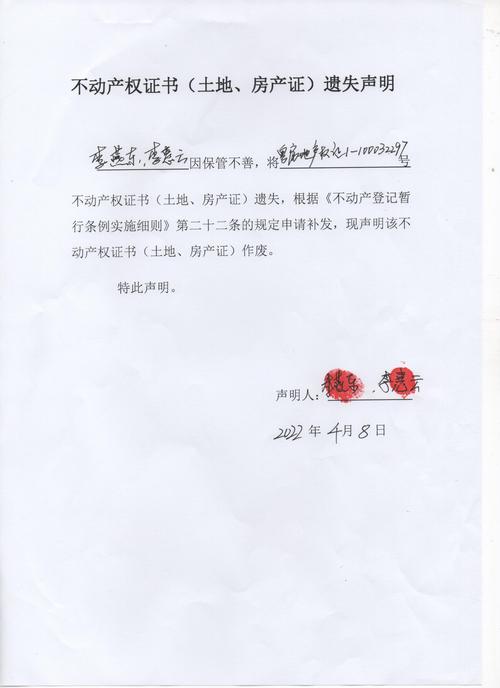 不动产权证书（土地、房产证）遗失声明
李燕东、李惠云因保管不善，将房地产权证1-100032297号
不动产权证书（土地、房产证）遗失，根据《不动产登记暂
行条例实施细则》第二十二条的规定申请补发，现声明该不
动产权证书（土地、房产证）作废。
特此声明。
声明人：李燕东、李惠云
2022年4月8日